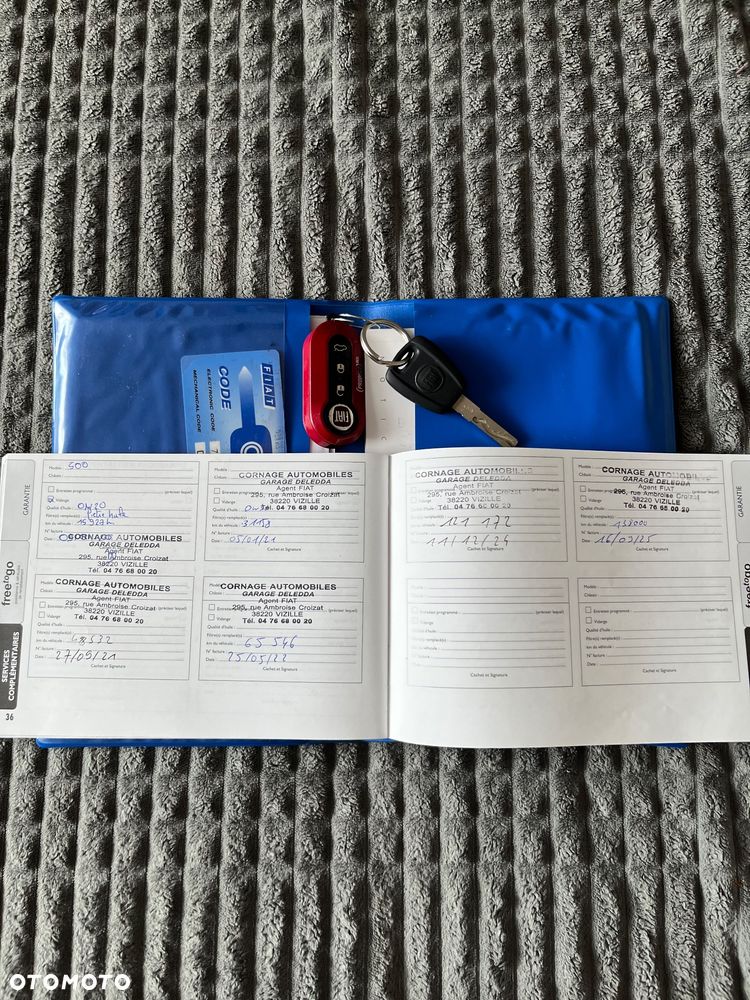 FIAT
CODE
ELECTRONIC CODE
MECHANICAL CODE
FIAT
FIAT
GARANTIE
freetogo
SERVICES
COMPLÉMENTAIRES
36
Modèle : 500
Châssis :
Entretien programmé : (préciser lequel)
Vidange
Qualité d'huile :
Filtre(s) remplacé(s) :
km du véhicule :
N° facture
Date :
Agent FIAT
295, rue Ambroise Croizat
38220 VIZILLE
Tél. 04 76 68 00 20
CORNAGE AUTOMOBILES
GARAGE DELEDDA
Agent FIAT
295, rue Ambroise Croizat
38220 VIZILLE
Tél. 04 76 68 00 20
km du véhicule : 31158
N° facture
Date : 05/01/21
Cachet et Signature
CORNAGE AUTOMOBILES
GARAGE DELEDDA
Agent FIAT
295, rue Ambroise Croizat
38220 VIZILLE
Tél. 04 76 68 00 20
Filtre(s) remplacé(s) :
km du véhicule : 48532
N° facture
Date : 27/09/21
Cachet et Signature
CORNAGE AUTOMOBILES
GARAGE DELEDDA
Agent FIAT
295, rue Ambroise Croizat
38220 VIZILLE
Tél. 04 76 68 00 20
Filtre(s) remplacé(s) :
km du véhicule : 65 546
N° facture
Date : 25/05/22
Cachet et Signature
CORNAGE AUTOMOBILES
GARAGE DELEDDA
Agent FIAT
295, rue Ambroise Croizat
38220 VIZILLE
Tél. 04 76 68 00 20
km du véhicule : 121 172
N° facture
Date : 11/12/24
Cachet et Signature
CORNAGE AUTOMOBILES
GARAGE DELEDDA
Agent FIAT
295, rue Ambroise Croizat
38220 VIZILLE
Tél. 04 76 68 00 20
km du véhicule : 138000
N° facture
Date : 16/09/25
Cachet et Signature
Modèle :
Châssis :
Entretien programmé : (préciser lequel)
Vidange
Qualité d'huile :
Filtre(s) remplacé(s) :
km du véhicule :
N° facture
Date :
Cachet et Signature
Modèle :
Châssis :
Entretien programmé : (préciser lequel)
Vidange
Qualité d'huile :
Filtre(s) remplacé(s) :
km du véhicule :
N° facture :
Date :
Cachet et Signature
GARANTIE
freetogo
OTOMOTO